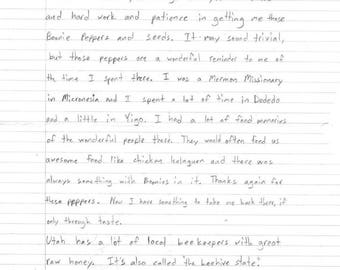 and hard work and patience in getting me those
Boonie Peppers and seeds. It may sound trivial,
but those peppers are a wonderful reminder to me of
the time I spent there. I was a Mormon Missionary
in Micronesia and I spent a lot of time in Dededo
and a little in Yigo. I had a lot of fond memories
of the wonderful people there. They would often feed us
awesome food like chicken kelaguen and there was
always something with Boonies in it. Thanks again for
these peppers. Now I have something to take me back there, if
only through taste.
Utah has a lot of local beekeepers with great
raw honey. It's also called "the beehive state".